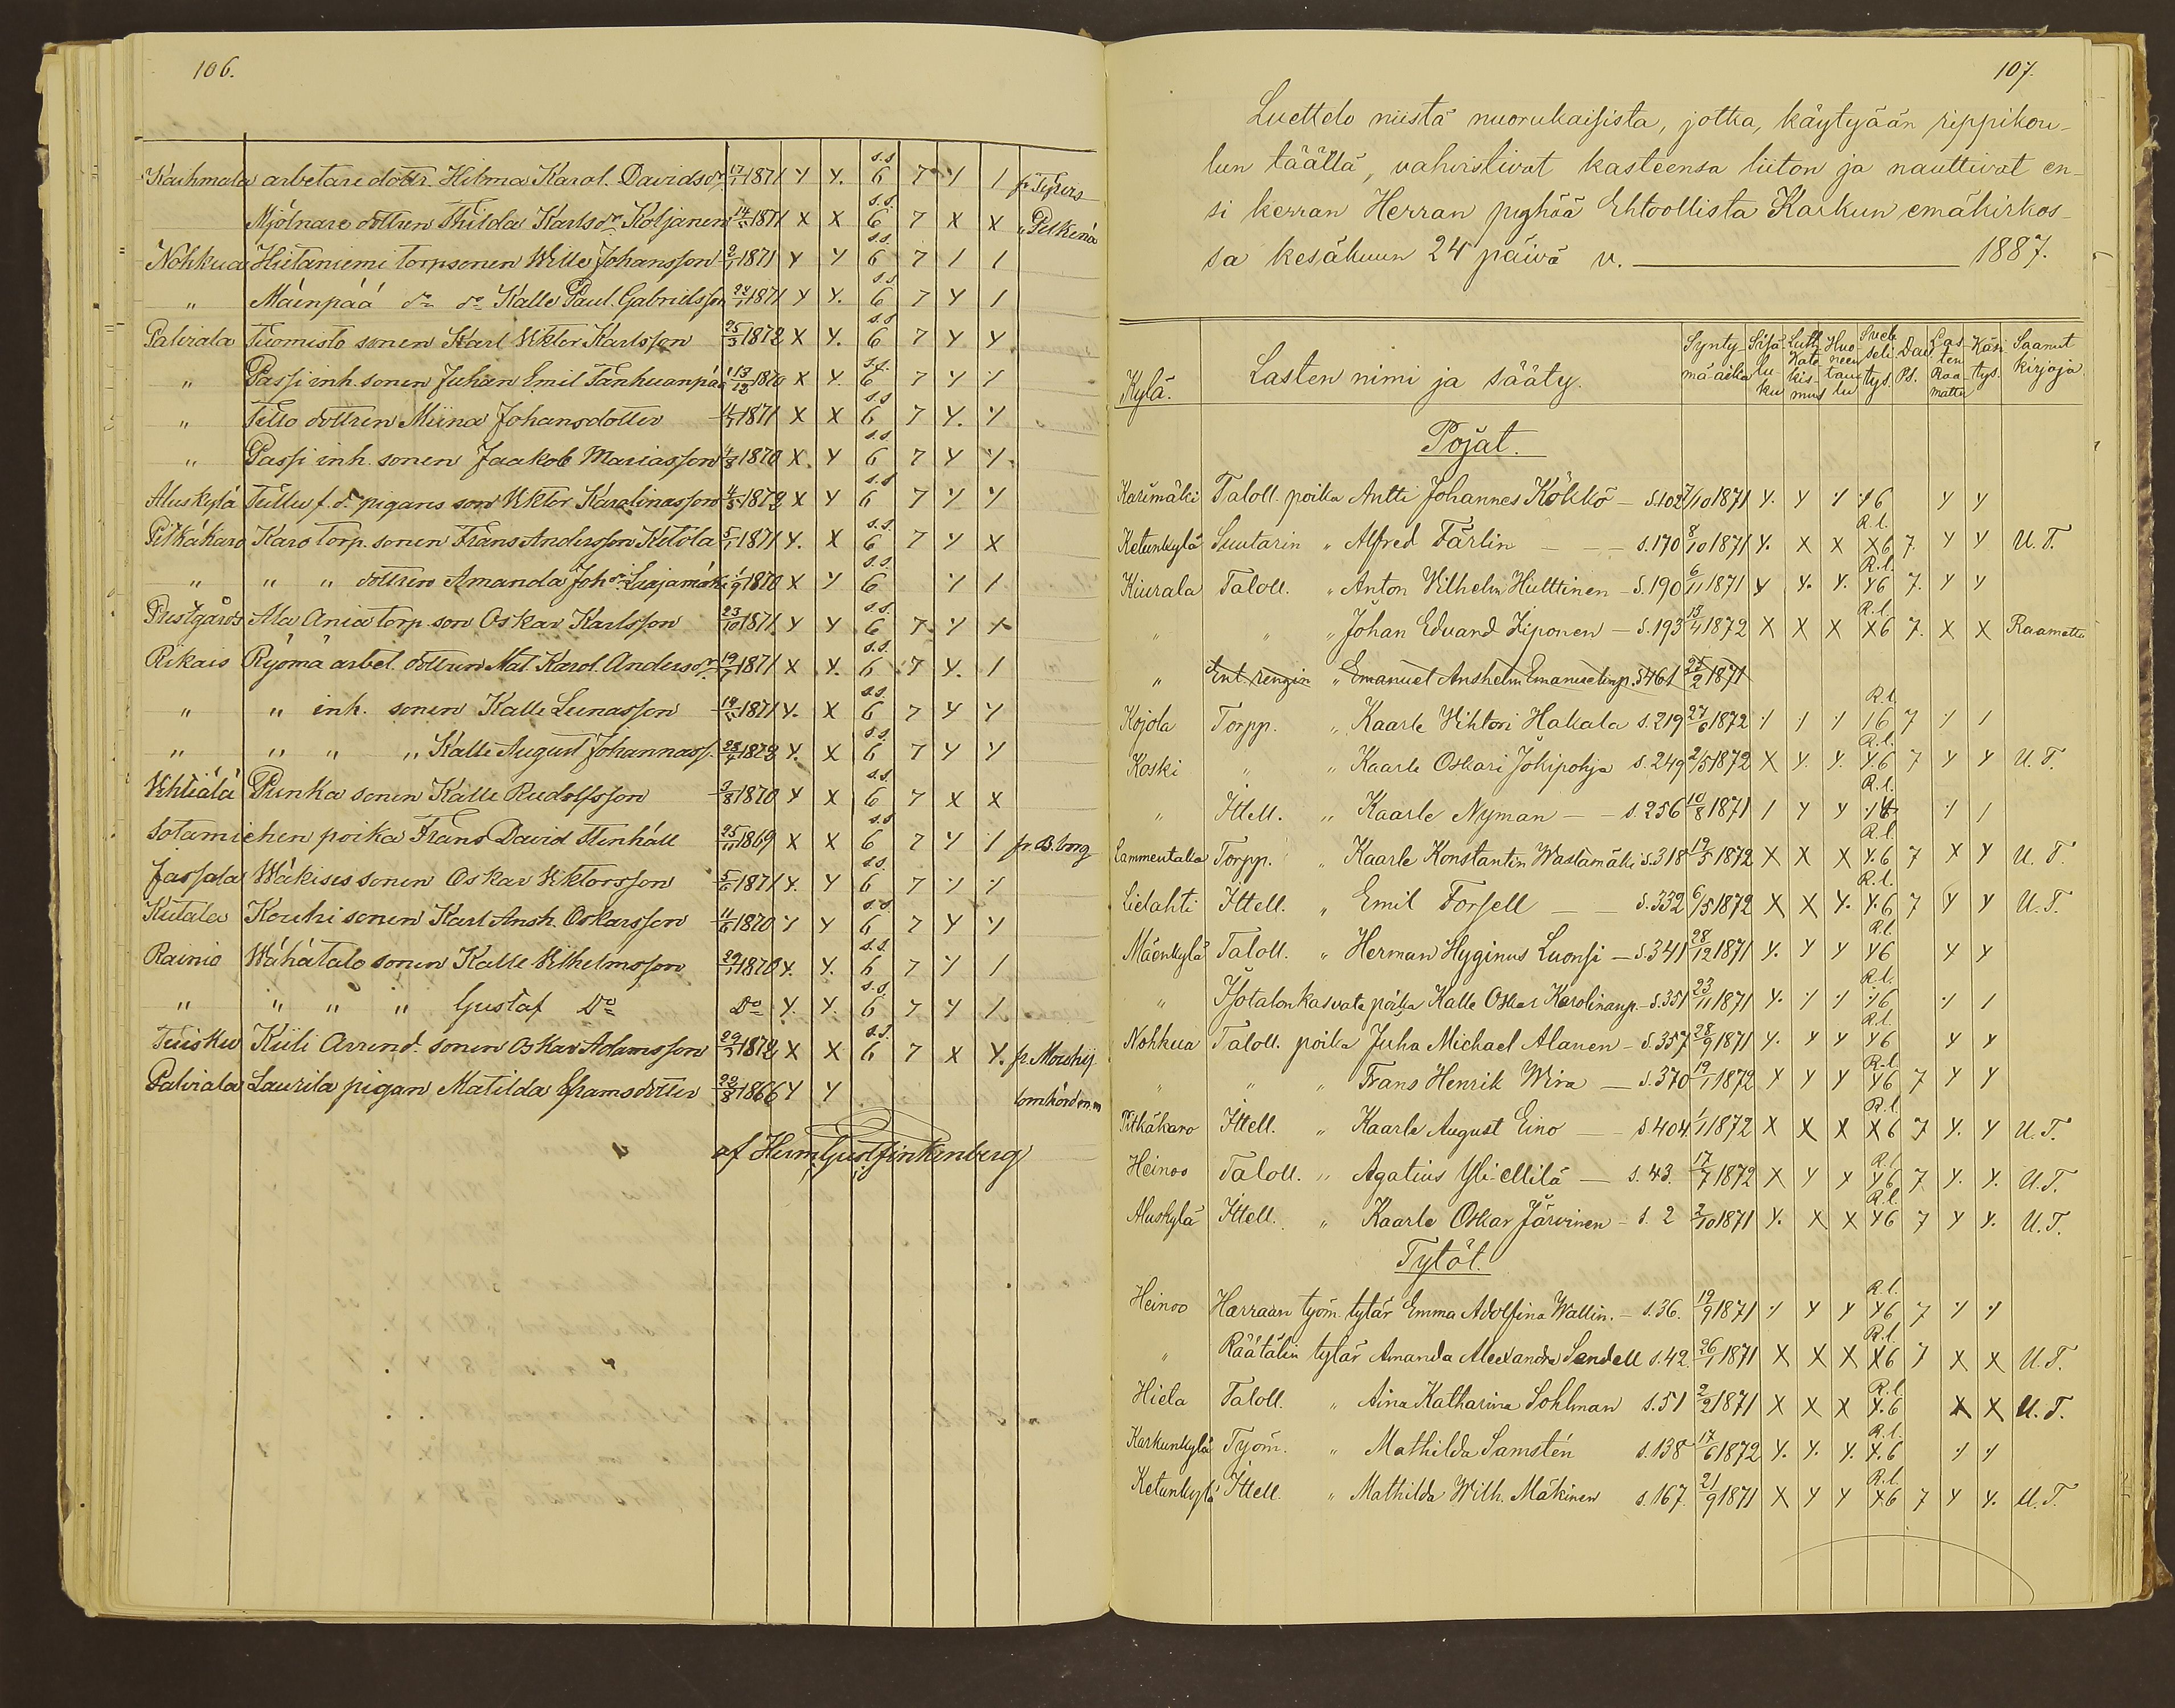 106.
Karhmala arbetare dottr. Hilma Karol. Davidsdr 17/1 1871 6 s.s. 7 fr Tyrvis
Mjölnare dottren Thilda Karlsdr Koljanen 14/5 1871 X X 6 s.s. 7 X X " Pelkenä
Nohkua Hietaniemi torpsonen Wille Johansson 2/1 1871 6 s.s. 7
" Mäenpää do do Kalle Paul. Gabrielsson 22/1 1871 6 s.s. 7
Palviala Tuomisto sonen Karl Viktor Karlsson 25/3 1872 X 6 s.s. 7
" Passi inh. sonen Juhan Emil Tanhuanpää 13/12 1870 X 6 s.s. 7
" Tello dottren Miina Johansdotter 1871 X X 6 s.s. 7
" Passi inh. sonen Jaakob Mariasson 1870 X 6 s.s. 7
Aluskylä Tullu f. d. pigans son Viktor Karolinasson 4/5 1872 X 6 s.s. 7
Pitkäkaro Karo Torp. sonen Frans Andersson Ketola 5/1 1871 X 6 s.s. 7 X
" " " dottren Amanda Johdr Linjamäki 1/9 1870 X 6 s.s.
Prestgårds Ala Ania torp. son Oskar Karlsson 23/10 1871 6 s.s. 7
Rikais Ryömä arbet. dottren Mat. Karol. Andersdr 19/7 1871 X 6 s.s. 7
" " inh. sonen Kalle Leenasson 19/5 1871 X 6 s.s. 7
" " " " Kalle August Johannass. 28/4 1872 X 6 s.s. 7
Vihtiälä Punka sonen Kalle Rudolfsson 3/8 1870 X 6 s.s. 7 X X
Sotamiehen poika Frans David Stenhäll 25/11 1869 X X 6 s.s. 7 fr B.borg
Jassala Wäkises sonen Oskar Viktorsson 5/6 1871 6 s.s. 7
Kutala Kouhi sonen Karl Ansh. Oskarsson 11/6 1870 6 s.s. 7
Rainio Wähätalo sonen Kalle Vilhelmsson 29/1 1870 6 s.s. 7
" " " " Gustaf Do Do 6 s.s. 7
Tuisku Kiili Arrend. sonen Oskar Adamsson 29/2 1872 X X 6 s.s. 7 X fr Mouhij.
Palviala Laurila pigan Matilda Efraimsdotter 22/8 1866
af Herm. Gust. Finkenberg
107.
Luettelo niistä nuorukaisista, jotka, käytyään rippikou-
lun täällä, vahvistivat kasteensa liiton ja nauttivat en-
si kerran Herran pyhää Ehtoollista Karkun emäkirkos-
sa kesäkuun 24 päivä v. 1887.
Kylä. Lasten nimi ja sääty. Synty-mä-aika Sisä-lu-ku Luth. Kate-kis-mus Huo-neen-tau-lu Sveb. seli-tys. Dav. Ps. Las-ten Raa-mattu Käsi-tys. Saanut kirjoja.
Pojat.
Karimäki Taloll. poika Antti Johannes Kökkö - S.102 7/10 1871 6
Ketunkylä Suutarin " Alfred Färlin - - - S.170 8/10 1871 X X R.l. X6 7. U.T.
Kiurala Taloll. " Anton Vilhelm Hulttinen - S.190 6/11 1871 R.l. 6 7.
" " " Johan Edvard Ziponen - S.193 13/4 1872 X X X R.l. X6 7. X X Raamattu
" Ent. rengin " Emanuel Anshelm Emanuelinp. S.461 25/2 1871
Kojola Torpp. " Kaarle Vihtori Hakala S.219 27/6 1872 R.l. 6 7
Koski " " Kaarle Oskari Jokipohja S.249 2/5 1872 X R.l. 6 7 U.T.
" Ittell. " Kaarle Nyman - - S.256 10/8 1871 R.l.
Lammentalla Torpp. " Kaarle Konstantin Wastamäki S.318 19/5 1872 X X X R.l. 6 7 X U.T.
Lielahti Ittell. " Emil Forsell - - S.332 6/5 1872 X X R.l. 6 7 U.T.
Mäenkylä Taloll. " Herman Hyginus Luonsi - S.341 28/12 1871 R.l. 6
" Isotalon kasvate poika Kalle Oskar Karolinanp. - S.351 23/11 1871 R.l. 6
Nohkua Taloll. poika Juha Michael Alanen - S.357 28/9 1871 R.l. 6
" " " Frans Henrik Wira - S.370 19/1 1872 R.l. 6 7
Pitkäkaro Ittell. " Kaarle August Eino - S.404 1/1 1872 X X X R.l. X6 7 U.T.
Heinoo Taloll. " Agatius Yli-ellilä - S.43. 17/7 1872 X R.l. 6 7 U.T.
Aluskylä Ittell. " Kaarle Oskar Järvinen - S. 2 2/10 1871 X X R.l. 6 7 U.T.
Tytöt.
Heinoo Harraan työm. tytär Emma Adolfina Wallin. - S.36. 19/9 1871 R.l. 6 7
" Räätälin tytär Amanda Alexandra Sandell S.42. 26/1 1871 X X X R.l. X6 7 X X U.T.
Hiela Taloll. " Aina Katharina Sohlman S.51 2/2 1871 X X X R.l. 6 X X U.T.
Karkunkylä Työm. " Mathilda Samstén S.138 17/6 1872 R.l. 6
Ketunkylä Ittell. " Mathilda Wilh. Mäkinen S.167. 21/9 1871 X R.l. 6 7 U.T.